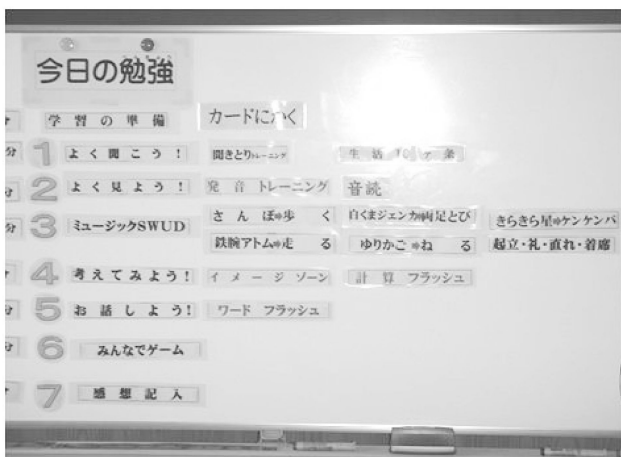 今日の勉強
学習の準備 カードにかく
分 1 よく聞こう! 聞きとりトレーニング 生活10ヶ条
分 2 よく見よう! 発音トレーニング 音読
分 3 ミュージックSWUD さんぽ⇒歩く 白くまジェンカ⇒両足とび きらきら星⇒ケンケンパ
鉄腕アトム⇒走る ゆりかご⇒ねる 起立・礼・直れ・着席
4 考えてみよう! イメージゾーン 計算フラッシュ
分 5 お話しよう! ワードフラッシュ
分 6 みんなでゲーム
7 感想記入